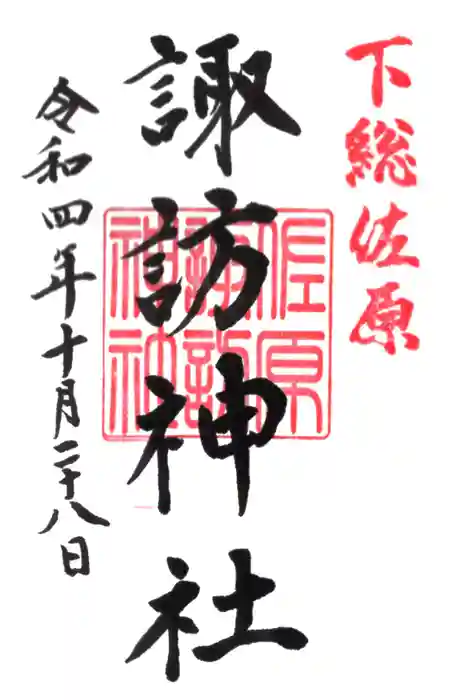 下総佐原
諏訪神社
佐原
諏訪
神社
令和四年十月二十八日